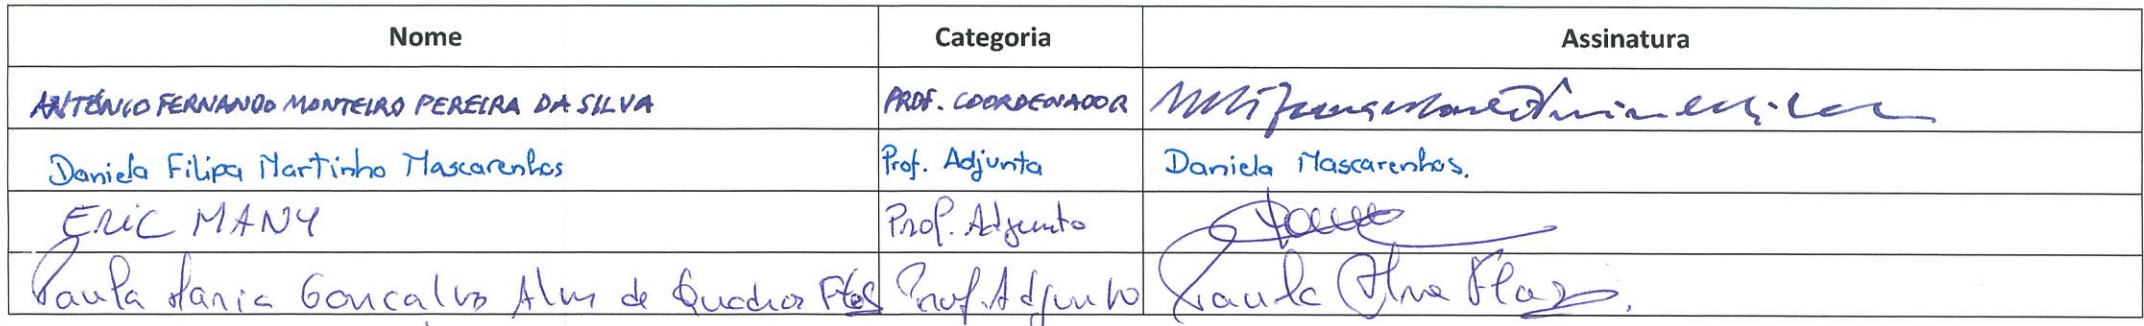 Nome Categoria Assinatura
ANTÓNIO FERNANDO MONTEIRO PEREIRA DA SILVA PROF. COORDENADOR
Daniela Filipa Martinho Mascarenhas Prof. Adjunta Daniela Mascarenhas.
ERIC MANY Prof. Adjunto
Paula Maria Gonçalves Alves de Quadros Flores Prof. Adjunto Paula